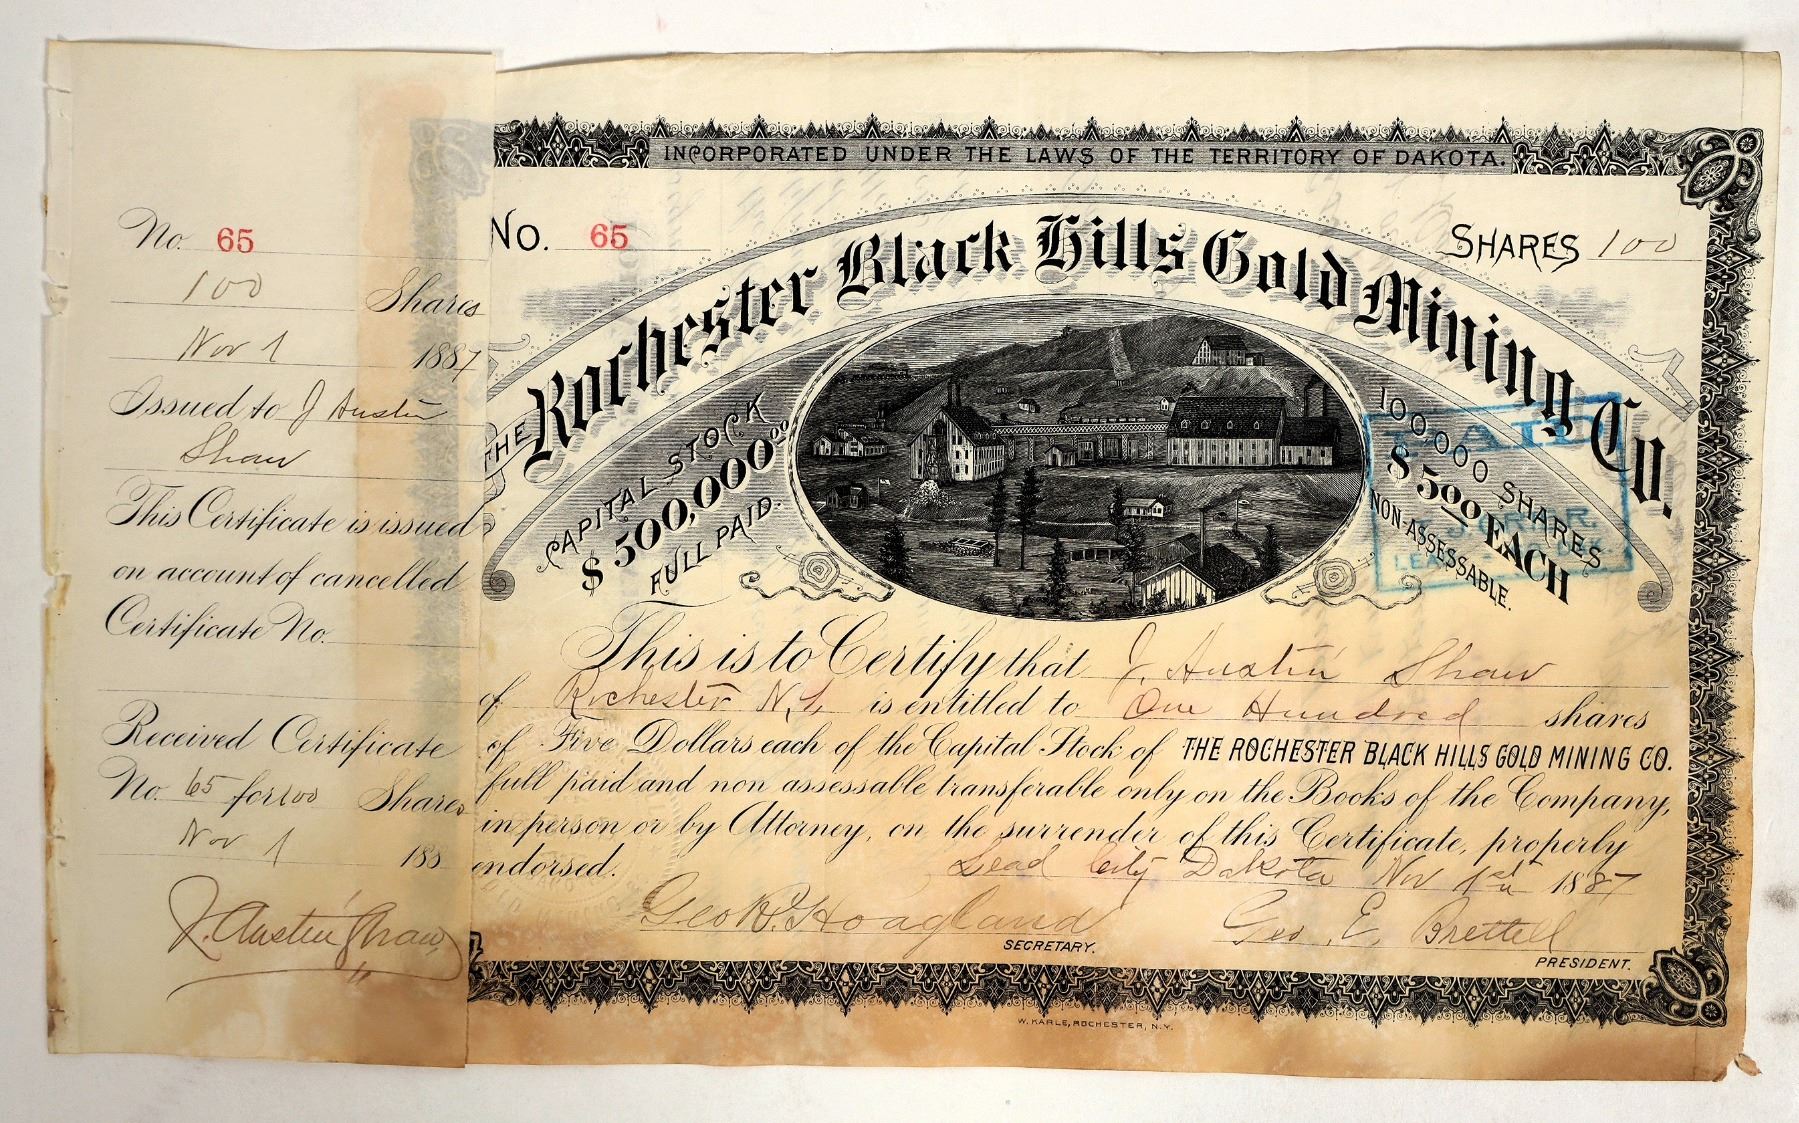 No. 65
100 Shares
Nov 1 1887
Issued to J Austin
Shaw
This Certificate is issued
on account of cancelled
Certificate No.
Received Certificate
No. 65 for 100 Shares
Nov 1 188
J. Austin Shaw
INCORPORATED UNDER THE LAWS OF THE TERRITORY OF DAKOTA.
No. 65
SHARES 100
THE Rochester Black Hills Gold Mining Co.
CAPITAL STOCK
$500,000.00
FULL PAID.
100000 SHARES
$5.00 EACH
NON-ASSESSABLE.
This is to Certify that J. Austin Shaw
of Rochester N.Y. is entitled to One Hundred shares
of Five Dollars each of the Capital Stock of THE ROCHESTER BLACK HILLS GOLD MINING CO.
full paid and non assessable transferable only on the Books of the Company,
in person or by Attorney, on the surrender of this Certificate, properly
endorsed.
Lead City Dakota Nov 1st 1887
Hoagland
SECRETARY.
Geo. E. Brettell
PRESIDENT.
W. KARLE, ROCHESTER, N.Y.